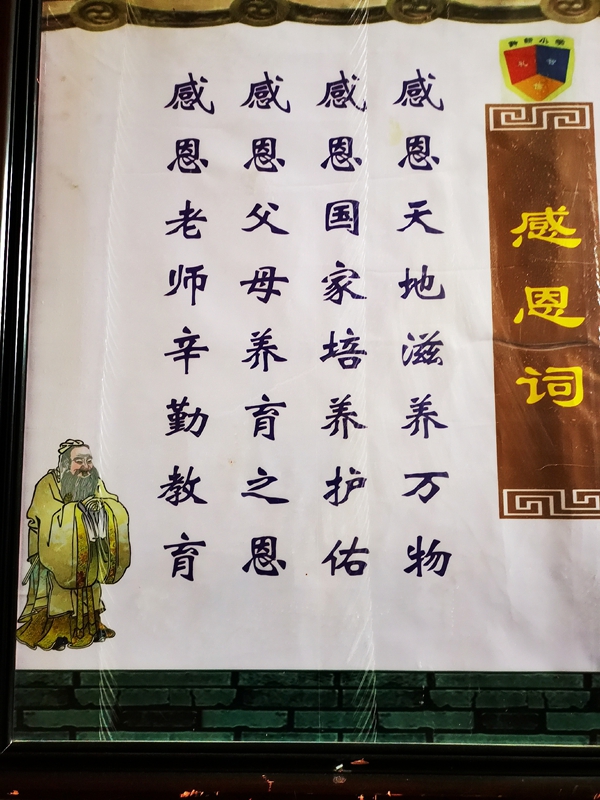 感恩词
感恩天地滋养万物
感恩国家培养护佑
感恩父母养育之恩
感恩老师辛勤教育